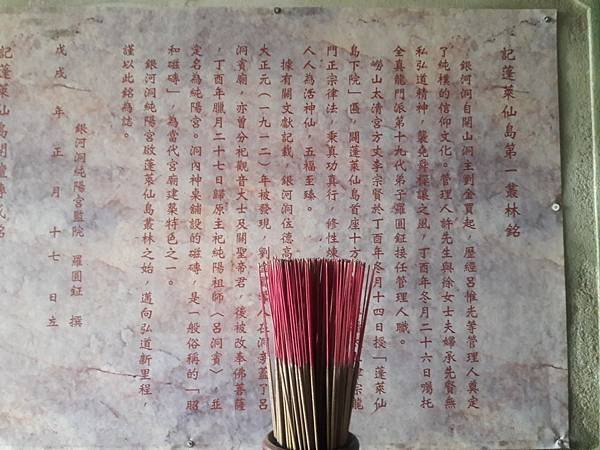 記蓬萊仙島第一叢林銘
銀河洞自開山洞主劉金買起，歷經呂惟光等管理人奠定
了純樸的信仰文化。管理人許先生與徐女士夫婦承先賢無
私弘道精神，襲堯舜禪讓之風，丁酉年冬月二十六日囑託
全真龍門派第十九代弟子羅圓鉦接任管理人職。
嶗山太清宮方丈李宗賢於丁酉年冬月十四日授「蓬萊仙
島下院」匾，闢蓬萊仙島首座十方 宗龍
門正宗律法，秉真功真行，修性煉
人人為活神仙，五福至臻。
據有關文獻記載，銀河洞伍德高
大正元（一九一二）年被發現，劉金 人在洞旁蓋了呂
洞賓廟，亦曾分祀觀音大士及關聖帝君，後被改奉佛菩薩
，丁酉年臘月二十七日歸原主祀純陽祖師（呂洞賓），並
定名為純陽宮。洞內神桌鋪設的磁磚，是一般俗稱的「昭
和磁磚」，為當代宮廟建築特色之一。
銀河洞純陽宮啟蓬萊仙島叢林之始，邁向弘道新里程，
謹以此銘為誌。
銀河洞純陽宮監院 羅圓鉦 撰
戊戌年正月十七日立